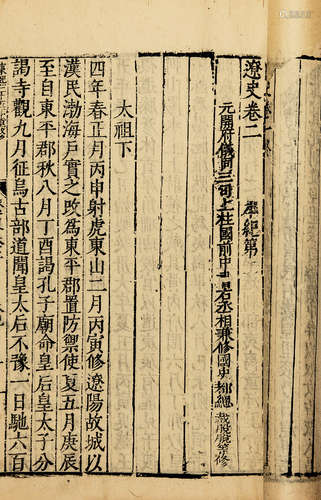 遼史卷二
本紀第
元開府儀同三司上柱國前中書右丞相兼修國史都總裁脫脫等修
太祖下
四年春正月丙申射虎東山二月丙寅修遼陽故城以
漢民渤海戶實之改為東平郡置防禦使夏五月庚辰
至自東平郡秋八月丁酉謁孔子廟命皇后皇太子分
謁寺觀九月征烏古部道聞皇太后不豫一日馳六百